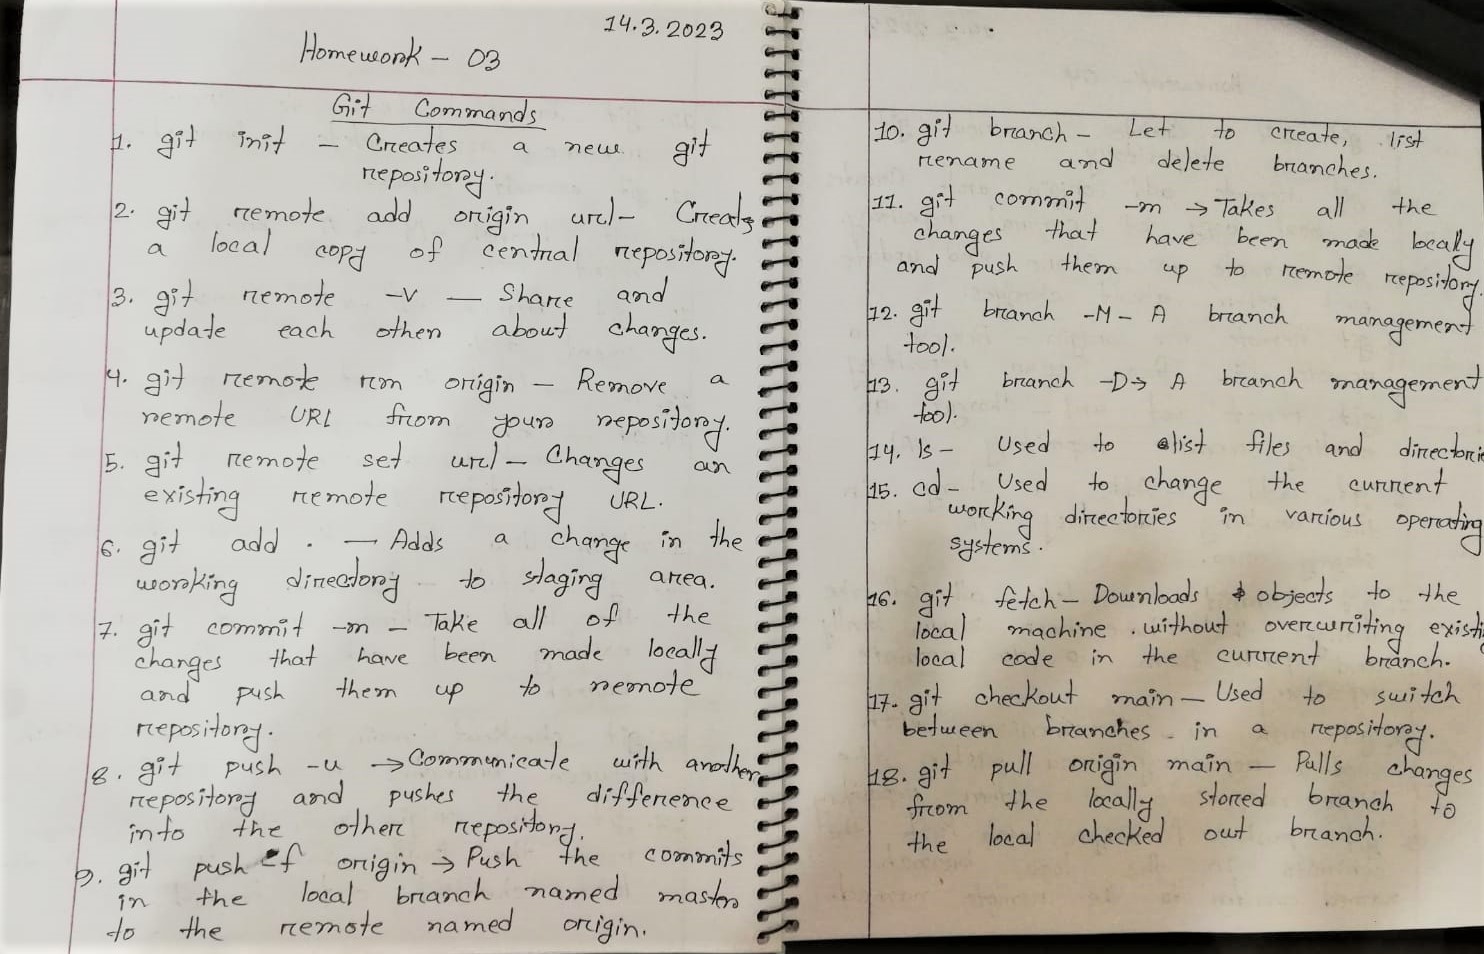 14.3.2023
Homework - 03
Git Commands
1. git init - Creates a new git
repository.
2. git remote add origin url - Creats
a local copy of central repository.
3. git remote -v - Share and
update each other about changes.
4. git remote rm origin - Remove a
remote URL from your repository.
5. git remote set url - Changes an
existing remote repository URL.
6. git add . - Adds a change in the
working directory to staging area.
7. git commit -m - Take all of the
changes that have been made locally
and push them up to remote
repository.
8. git push -u → Communicate with another
repository and pushes the difference
into the other repository.
9. git push -f origin → Push the commits
in the local branch named master
to the remote named origin.
10. git branch - Let to create, list
rename and delete branches.
11. git commit -m → Takes all the
changes that have been made locally
and push them up to remote repository.
12. git branch -M - A branch management
tool.
13. git branch -D → A branch management
tool.
14. ls - Used to list files and directorie
15. cd - Used to change the current
working directories in various operating
systems.
16. git fetch - Downloads objects to the
local machine without overwriting existi
local code in the current branch.
17. git checkout main - Used to switch
between branches in a repository.
18. git pull origin main - Pulls changes
from the locally stored branch to
the local checked out branch.